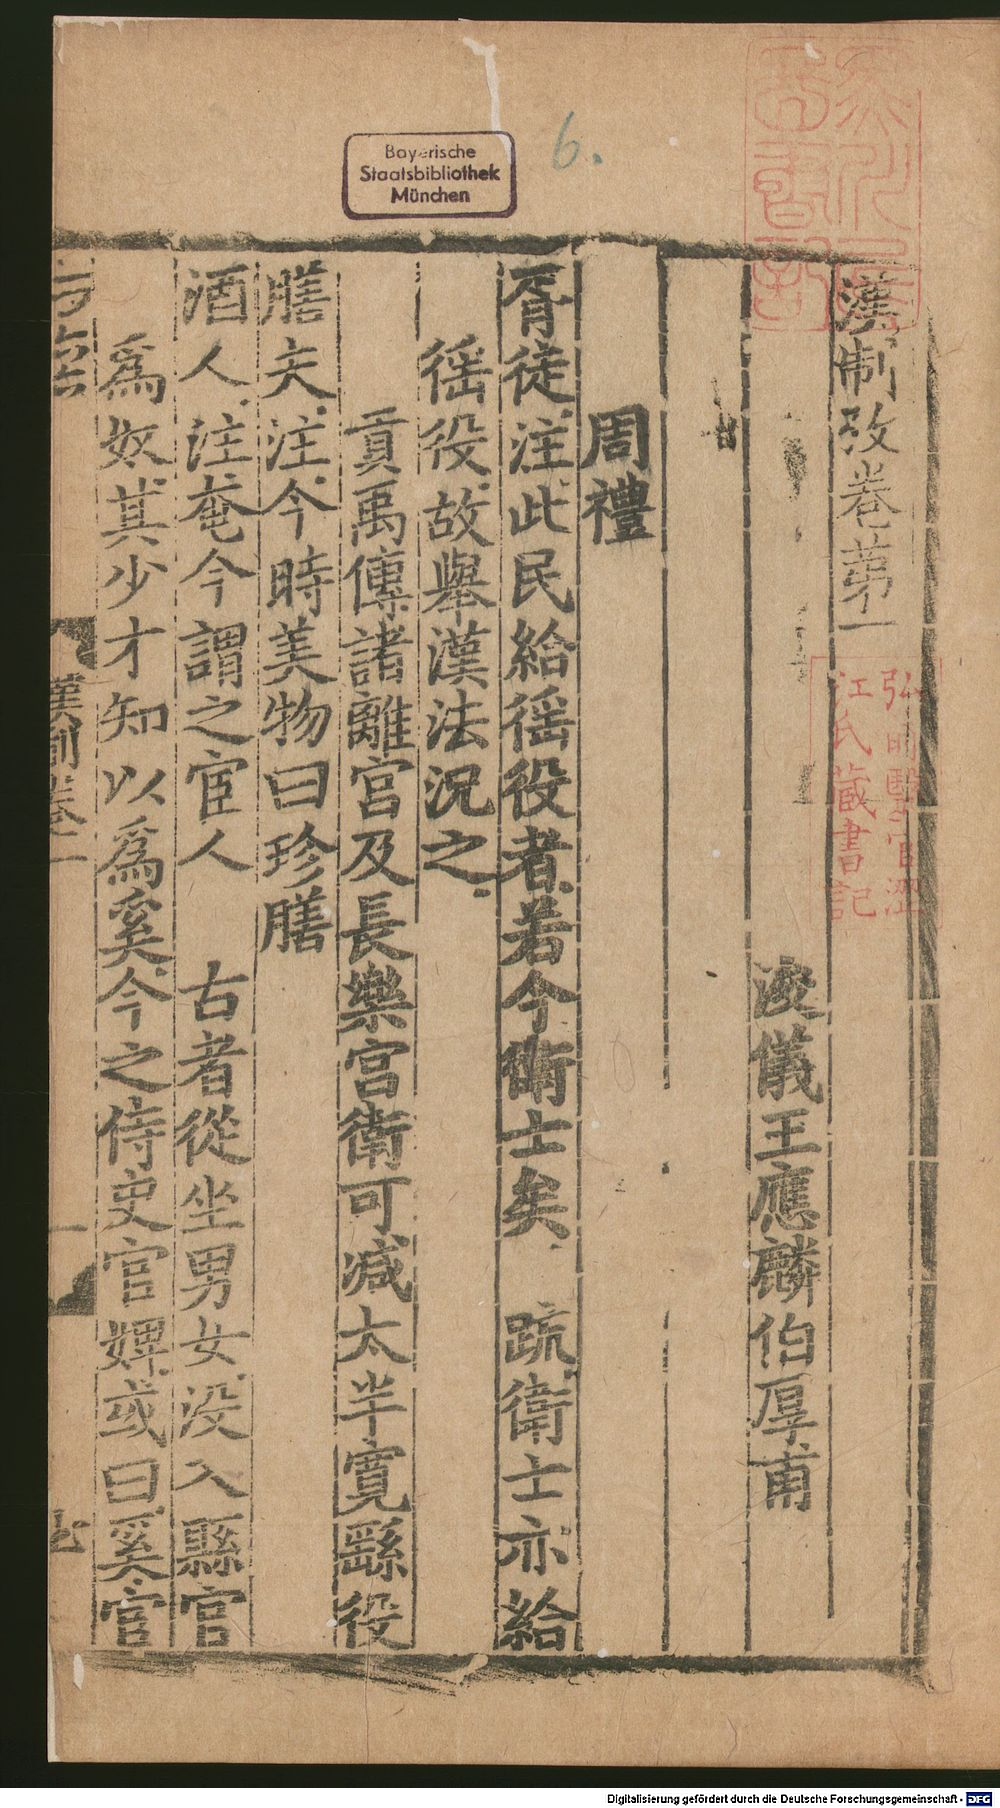 漢制攷卷苐一
浚儀王應麟伯厚甫
周禮
胥徒注此民給徭役者若今衛士矣 疏衛士亦給
徭役故舉漢法況之
貢禹傳諸離宮及長樂宮衛可減太半寬繇役
膳夫注今時美物曰珍膳
酒人注奄今謂之宦人 古者從坐男女没入縣官
爲奴其少才知以爲奚今之侍史官婢或曰奚官
漢制卷一
一
弘前醫官澀
江氏藏書記
Bayerische
Staatsbibliothek
München
6.
Digitalisierung gefördert durch die Deutsche Forschungsgemeinschaft - DFG